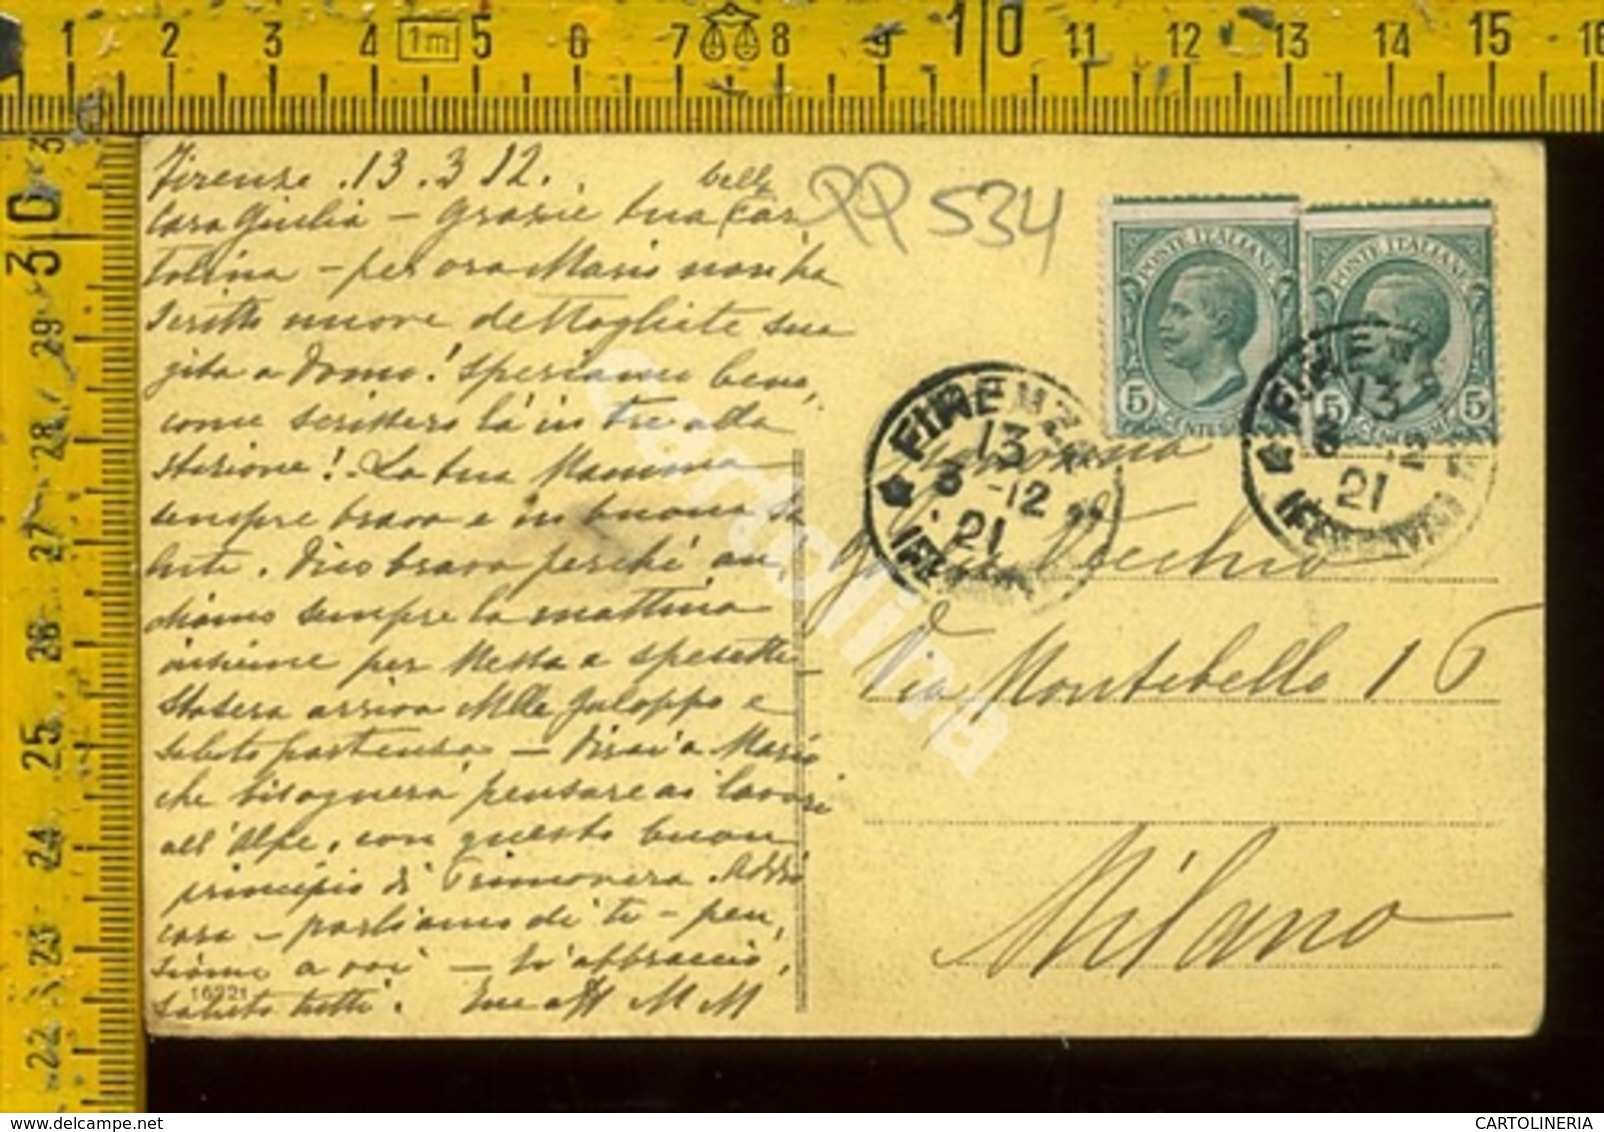 1 2 3 4 1m 5 6 7 8 9 10 11 12 13 14 15 16
30 29 28 27 26 25 24 23 22
Firenze . 13 . 3 12 .
bella
Cara Giulia – Grazie tua Car,
tolina – per ora Mario non ha
scritto nuove dettagliate sua
gita a Domo! Speriamo bene,
come scrittero là in tre alla
stazione! La tua Mamma
sempre brava e in buona sa
lute. Dico brava perchè an,
diamo sempre la mattina
insieme per Messa e spesette
Stasera arriva Mlle Galoppo e
saluto partenza – Dirai a Mario
che bisognerà pensare ai lavori
all'Alpe, con questo buon
principio di Primavera. Addio
cara – parliamo di te – pen,
siamo a voi – ti abbraccio,
saluto tutti. aff M M
16221
PP 534
POSTE ITALIANE
5
POSTE ITALIANE
5 5
FIRENZE
13
3 -12
21
FIRENZE
13
3 -12
21
Vecchio
Via Montebello 16
Milano
cartolina
delcampe.net
CARTOLINERIA